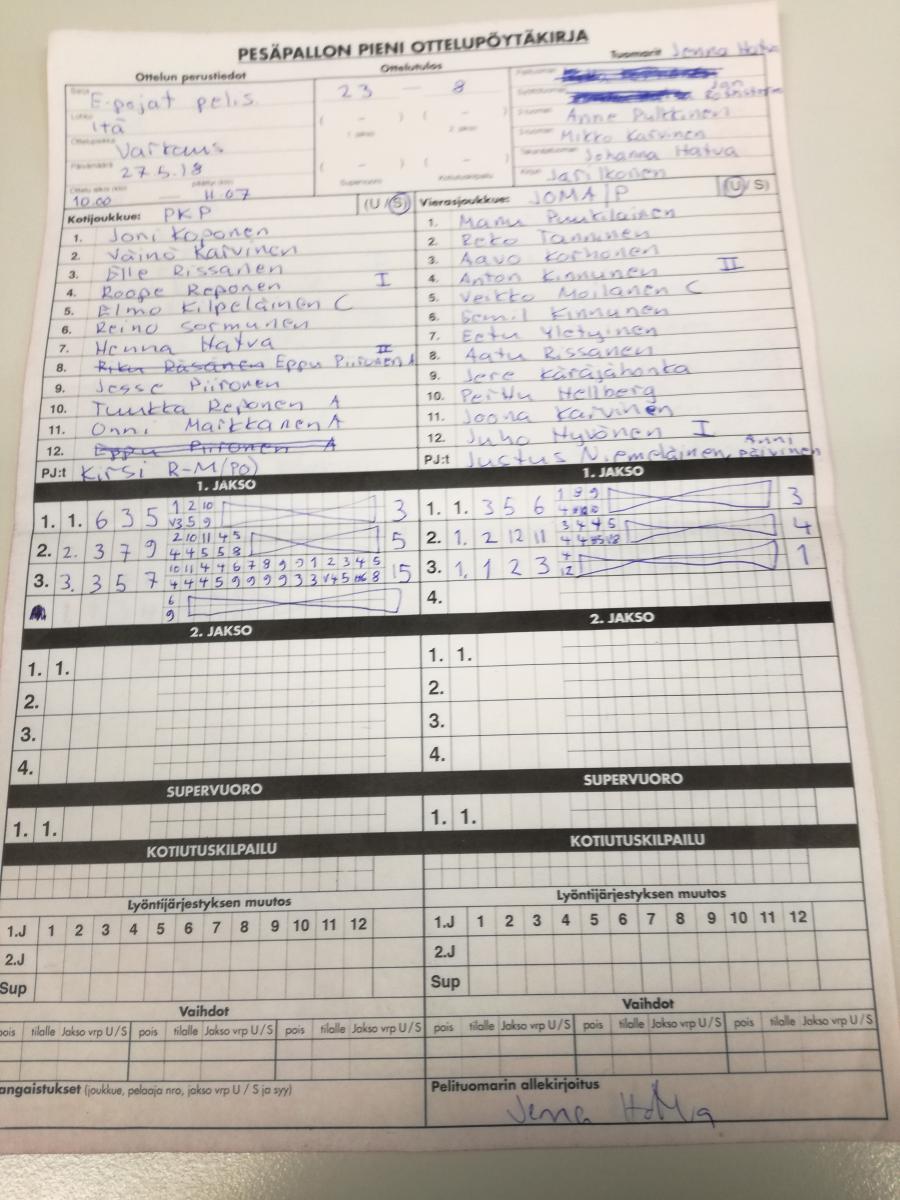 PESÄPALLON PIENI OTTELUPÖYTÄKIRJA
Ottelun perustiedot Ottelutulos Tuomarit Jenna Hatva
Sarja E-pojat pelis. 23 – 8
Lohko Itä
Ottelupaikka Varkaus
Päivämäärä 27.5.18
10.00 — 11.07
( – ) ( – )
1. jakso 2. jakso
( – ) ( – )
Supervuoro Kotiutuskilpailu
Jan
Anne Pulkkinen
Mikko Karvinen
Johanna Hatva
Jari Ikonen
Kotijoukkue: PKP (U/S)
1. Joni Koponen
2. Väinö Karvinen
3. Elle Rissanen
4. Roope Reponen I
5. Elmo Kilpeläinen C
6. Reino Sormunen
7. Henna Hatva
8. Riku Räsänen Eppu Piironen A II
9. Jesse Piironen
10. Tuukka Reponen A
11. Onni Markkanen A
12. Eppu Piironen A
PJ:t Kirsi R-M (PO)
Vierasjoukkue: JOMA/P (U/S)
1. Manu Puukilainen
2. Reko Tanninen
3. Aavo Korhonen
4. Anton Kinnunen II
5. Veikko Moilanen C
6. Eemil Kinnunen
7. Eetu Yletyinen
8. Aatu Rissanen
9. Jere Käräjähonka
10. Peittu Hellberg
11. Joona Karvinen
12. Juho Hyvönen I
PJ:t Justus Niemeläinen, Anni Päivinen
1. JAKSO
1. 1. 6 3 5 1 2 10 3
V3 5 9
2. 2. 3 7 9 2 10 11 4 5 5
4 4 5 5 8
3. 3. 3 5 7 10 11 4 4 6 7 8 9 1 2 3 4 5 15
4 4 4 5 9 9 9 9 3 3 V4 5 8
6
9
1. JAKSO
1. 1. 3 5 6 1 8 9 3
2. 1. 2 12 11 3 4 4 5 4
3. 1. 1 2 3 4 1
12
4.
2. JAKSO
1. 1.
2.
3.
4.
2. JAKSO
1. 1.
2.
3.
4.
SUPERVUORO
1. 1.
SUPERVUORO
1. 1.
KOTIUTUSKILPAILU
KOTIUTUSKILPAILU
Lyöntijärjestyksen muutos
1.J 1 2 3 4 5 6 7 8 9 10 11 12
2.J
Sup
Lyöntijärjestyksen muutos
1.J 1 2 3 4 5 6 7 8 9 10 11 12
2.J
Sup
Vaihdot
pois tilalle Jakso vrp U/S pois tilalle Jakso vrp U/S pois tilalle Jakso vrp U/S
Vaihdot
pois tilalle Jakso vrp U/S pois tilalle Jakso vrp U/S pois tilalle Jakso vrp U/S
angaistukset (joukkue, pelaaja nro, jakso vrp U / S ja syy)
Pelituomarin allekirjoitus
Jenna Hatva